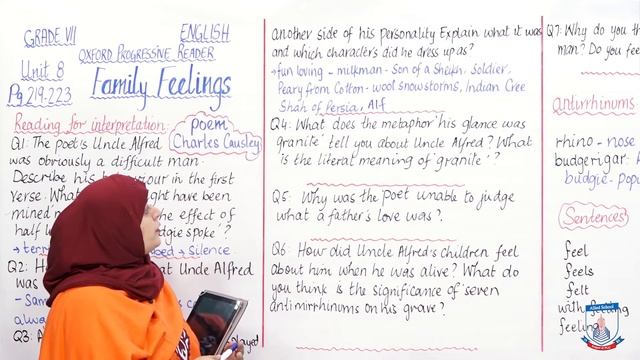 GRADE VII
ENGLISH
OXFORD PROGRESSIVE READER
Unit 8
Pg 219-223
Family Feelings
Reading for interpretation:
poem
Charles Causley
Q1: The poet's Uncle Alfred
was obviously a difficult man.
Describe his behaviour in the first
verse. What have been
the effect of
half spoke'?
→ → Silence
Q2: Uncle Alfred
was
Q3:
another side of his personality Explain what it was
and which characters did he dress up as?
→ fun loving - milkman - Son of a Sheikh, Soldier,
Peary from Cotton-wool snowstorms, Indian Cree
Shah of Persia, Alf
Q4: What does the metaphor 'his glance was
granite' tell you about Uncle Alfred? What
is the literal meaning of 'granite'?
Q5: Why was the poet unable to judge
what a father's love was?
Q6: How did Uncle Alfred's children feel
about him when he was alive? What do
you think is the significance of 'seven
antimirrhinums on his grave?
Q7: Why do you
man? Do you
antirrhinums
rhino - nose
budgerigar:
budgie -
Sentences
feel
feels
felt
with feeling
feeling
Allied School